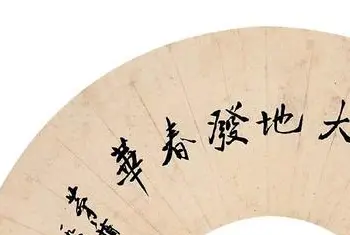 大地發春華